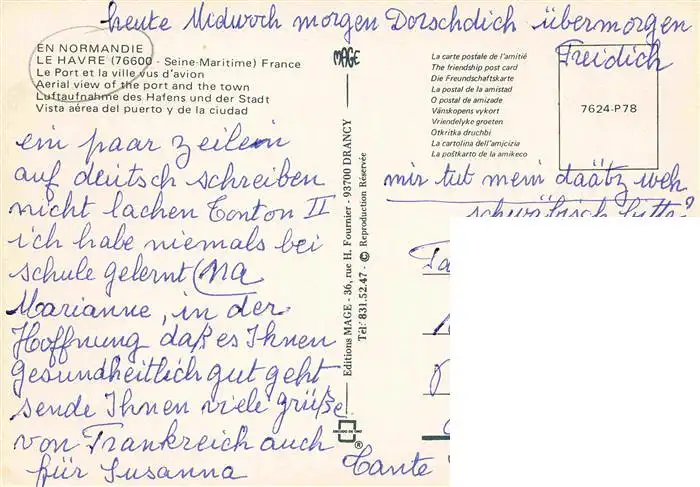 heute Midwoch morgen Dorschdich übermorgen
Freidich
EN NORMANDIE
LE HAVRE (76600 - Seine-Maritime) France
Le Port et la ville vus d'avion
Aerial view of the port and the town
Luftaufnahme des Hafens und der Stadt
Vista aérea del puerto y de la ciudad
MAGE
La carte postale de l'amitié
The friendship post card
Die Freundschaftskarte
La postal de la amistad
O postal de amizade
Vänskapens vykort
Vriendelyke groeten
Otkritka druchbi
La cartolina dell'amicizia
La poŝtkarto de la amikeco
7624-P78
ein paar zeilein
auf deutsch schreiben
nicht lachen Tonton II
ich habe niemals bei
schule gelernt (na
Marianne, in der
Hoffnung daß es Ihnen
gesundheitlich gut geht
sende Ihnen viele grüße
von Frankreich auch
für Susanna
Editions MAGE - 36, rue H. Fournier - 93700 DRANCY
Tél: 831.52.47 - © Reproduction Réservée
®
mir tut mein daätz weh
schwäbisch bitte?
Tante